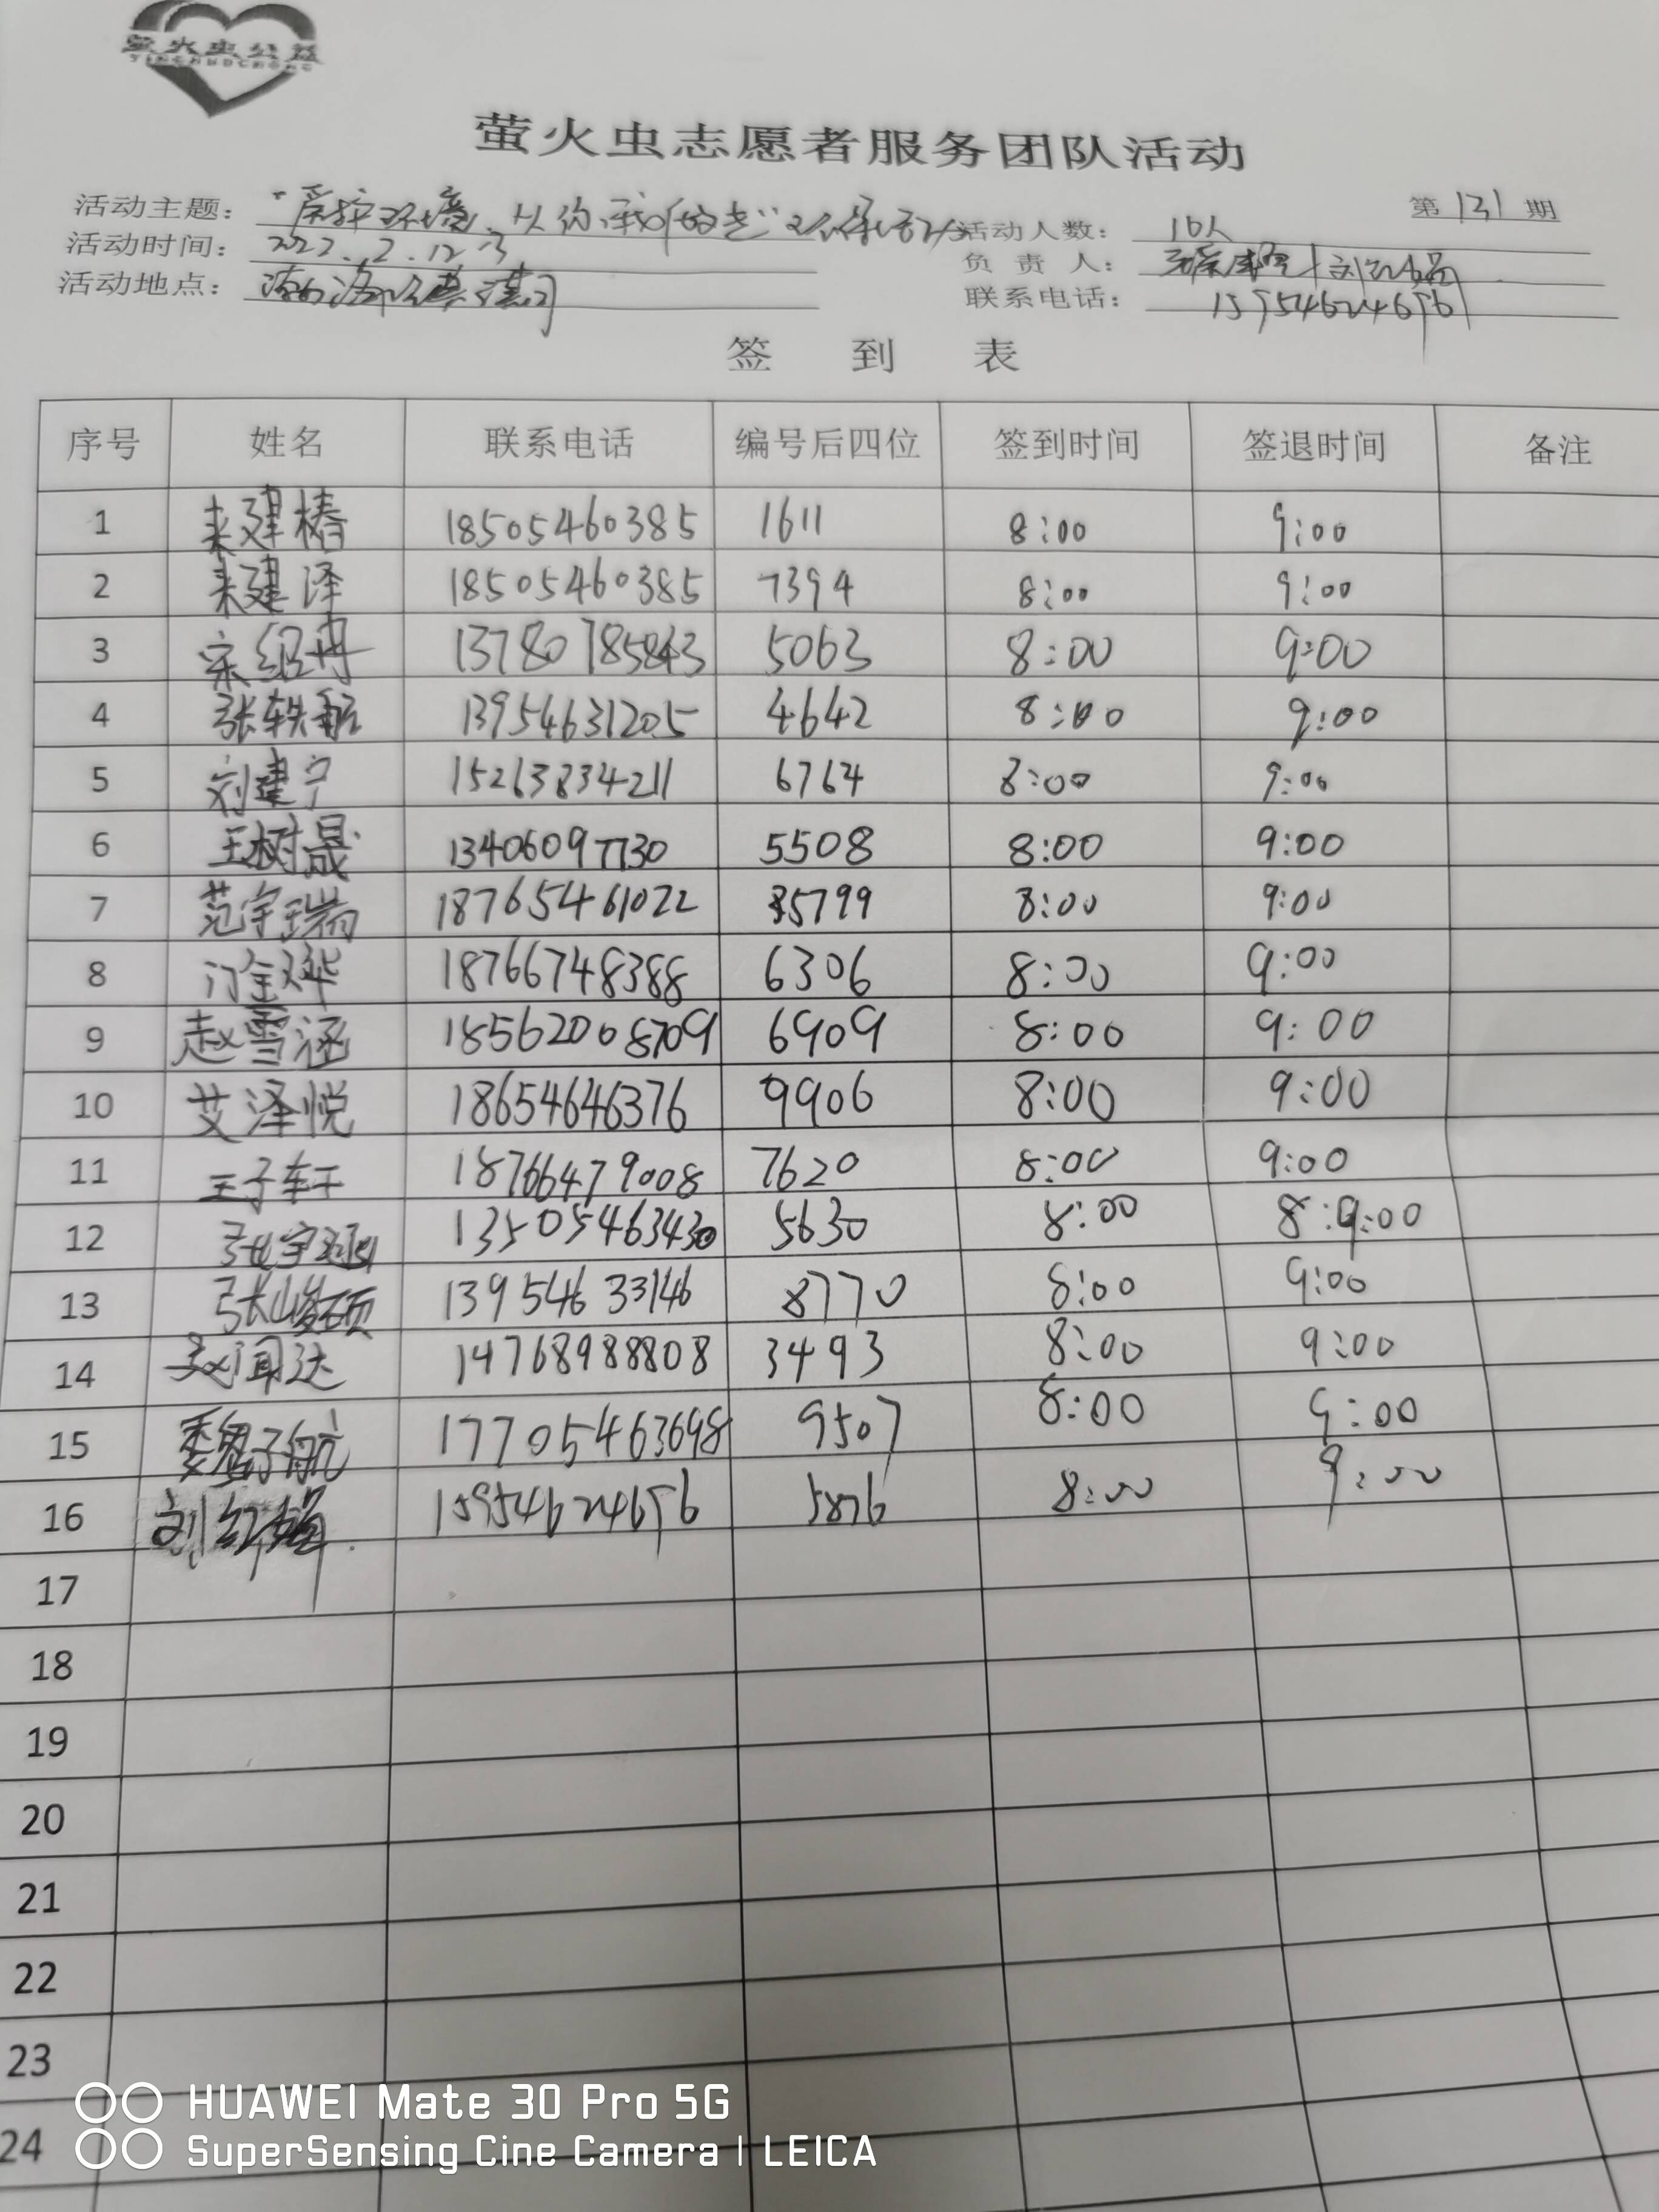 萤火虫公益
YINGHUOCHONG
萤火虫志愿者服务团队活动
第131期
活动主题: "爱护环境、从你我做起"环保活动
活动人数: 16人
活动时间: 2022.2.12
负责人: 刘红梅
活动地点:
联系电话: 15954624696
签 到 表
序号 姓名 联系电话 编号后四位 签到时间 签退时间 备注
1 来建椿 18505460385 1611 8:00 9:00
2 来建泽 18505460385 7394 8:00 9:00
3 宋绍冉 13780785843 5063 8:00 9:00
4 张轶航 13954631205 4642 8:00 9:00
5 刘建宁 15263834211 6764 8:00 9:00
6 王树晟 13406097730 5508 8:00 9:00
7 范宇瑞 18765461022 5799 8:00 9:00
8 18766748388 6306 8:00 9:00
9 赵雪涵 18562008709 6909 8:00 9:00
10 艾泽悦 18654646376 9906 8:00 9:00
11 王子轩 18766479008 7620 8:00 9:00
12 13505463430 5630 8:00 9:00
13 张峻硕 13954633146 8770 8:00 9:00
14 赵闻达 14768988808 3493 8:00 9:00
15 魏子航 17705463698 9507 8:00 9:00
16 刘红梅 15954624696 5876 8:00 9:00
17
18
19
20
21
22
23
24
HUAWEI Mate 30 Pro 5G
SuperSensing Cine Camera | LEICA